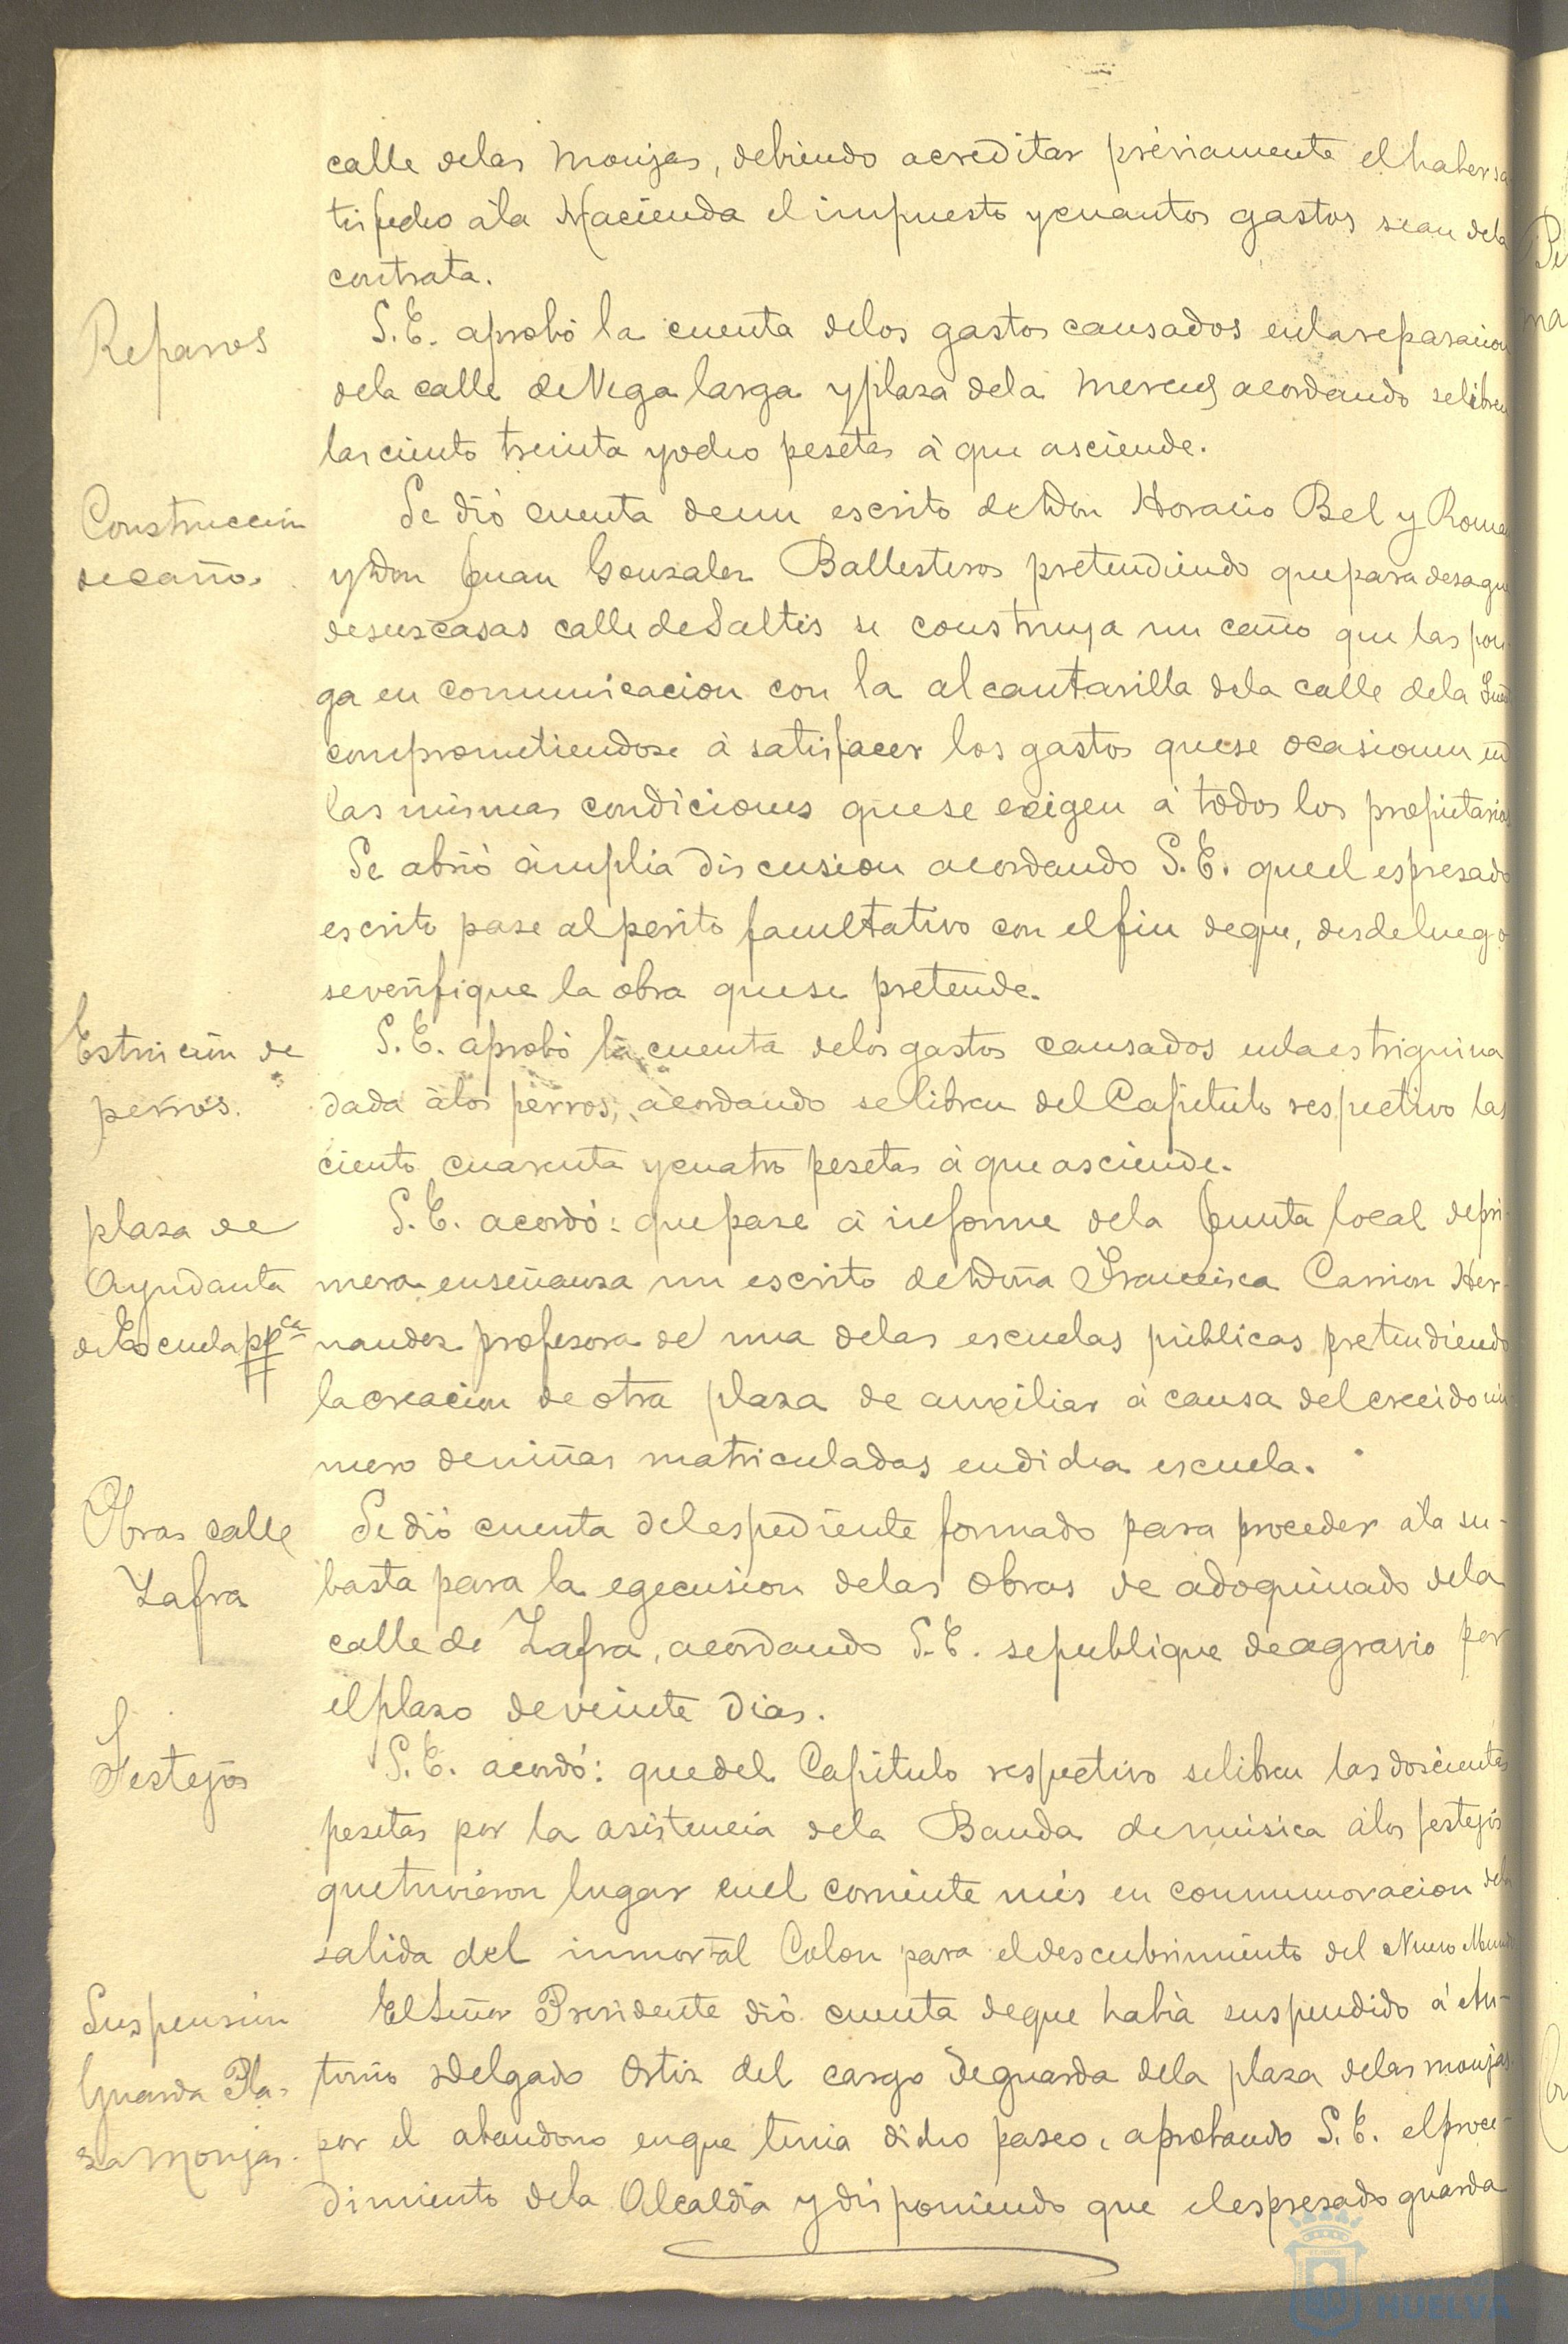 calle de las Monjas, debiendo acreditar préviamente el haber sa
tisfecho á la Hacienda el impuesto y cuantos gastos sean de la
contrata.
Reparos
S.E. aprobó la cuenta de los gastos causados en la reparacion
de la calle de Vega larga y plaza de la Merced acordando se libren
las ciento treinta y ocho pesetas á que asciende.
Construccion
de caños.
Se dió cuenta de un escrito de Don Horacio Bel y Rome
y Don Juan Gonzalez Ballesteros pretendiendo que para desague
de sus casas calle de Saltés se construya un caño que las pon
ga en comunicacion con la alcantarilla de la calle de la
comprometiendose á satisfacer los gastos que se ocasionen en
las mismas condiciones que se exigen á todos los propietarios
Se abrió ámplia discusion acordando S.E. que el espresado
escrito pase al perito facultativo con el fin de que, desde luego
se verifique la obra que se pretende.
Estricnina de
perros.
S.E. aprobó la cuenta de los gastos causados en la estriguina
dada á los perros, acordando se libren del Capítulo respectivo las
ciento cuarenta y cuatro pesetas á que asciende.
plaza de
Ayudanta
de Escuela ppca
S.E. acordó: que pase á informe de la Junta local de pri-
mera enseñanza un escrito de Doña Francisca Carrion Her-
nandez profesora de una de las escuelas públicas pretendiendo
la creacion de otra plaza de auxiliar á causa del crecido nú-
mero de niñas matriculadas en dicha escuela.
Obras calle
Zafra
Se dió cuenta del espediente formado para proceder á la su-
basta para la egecusion de las obras de adoquinado de la
calle de Zafra, acordando S.E. se publique de agravio por
el plazo de veinte dias.
Festejos
S.E. acordó: que del Capítulo respectivo se libren las doscientas
pesetas por la asistencia de la Banda de música á los festejos
que tuvieron lugar en el corriente mes en conmemoracion de la
salida del inmortal Colon para el descubrimiento del Nuevo Mundo
Suspension
Guarda Pla-
za Monjas.
El Señor Presidente dió cuenta de que había suspendido á An-
tonio Delgado Ortiz del cargo de guarda de la plaza de las monjas
por el abandono en que tenia dicho paseo, aprobando S.E. el proce-
dimiento de la Alcaldía y disponiendo que el espresado guarda
HUELVA